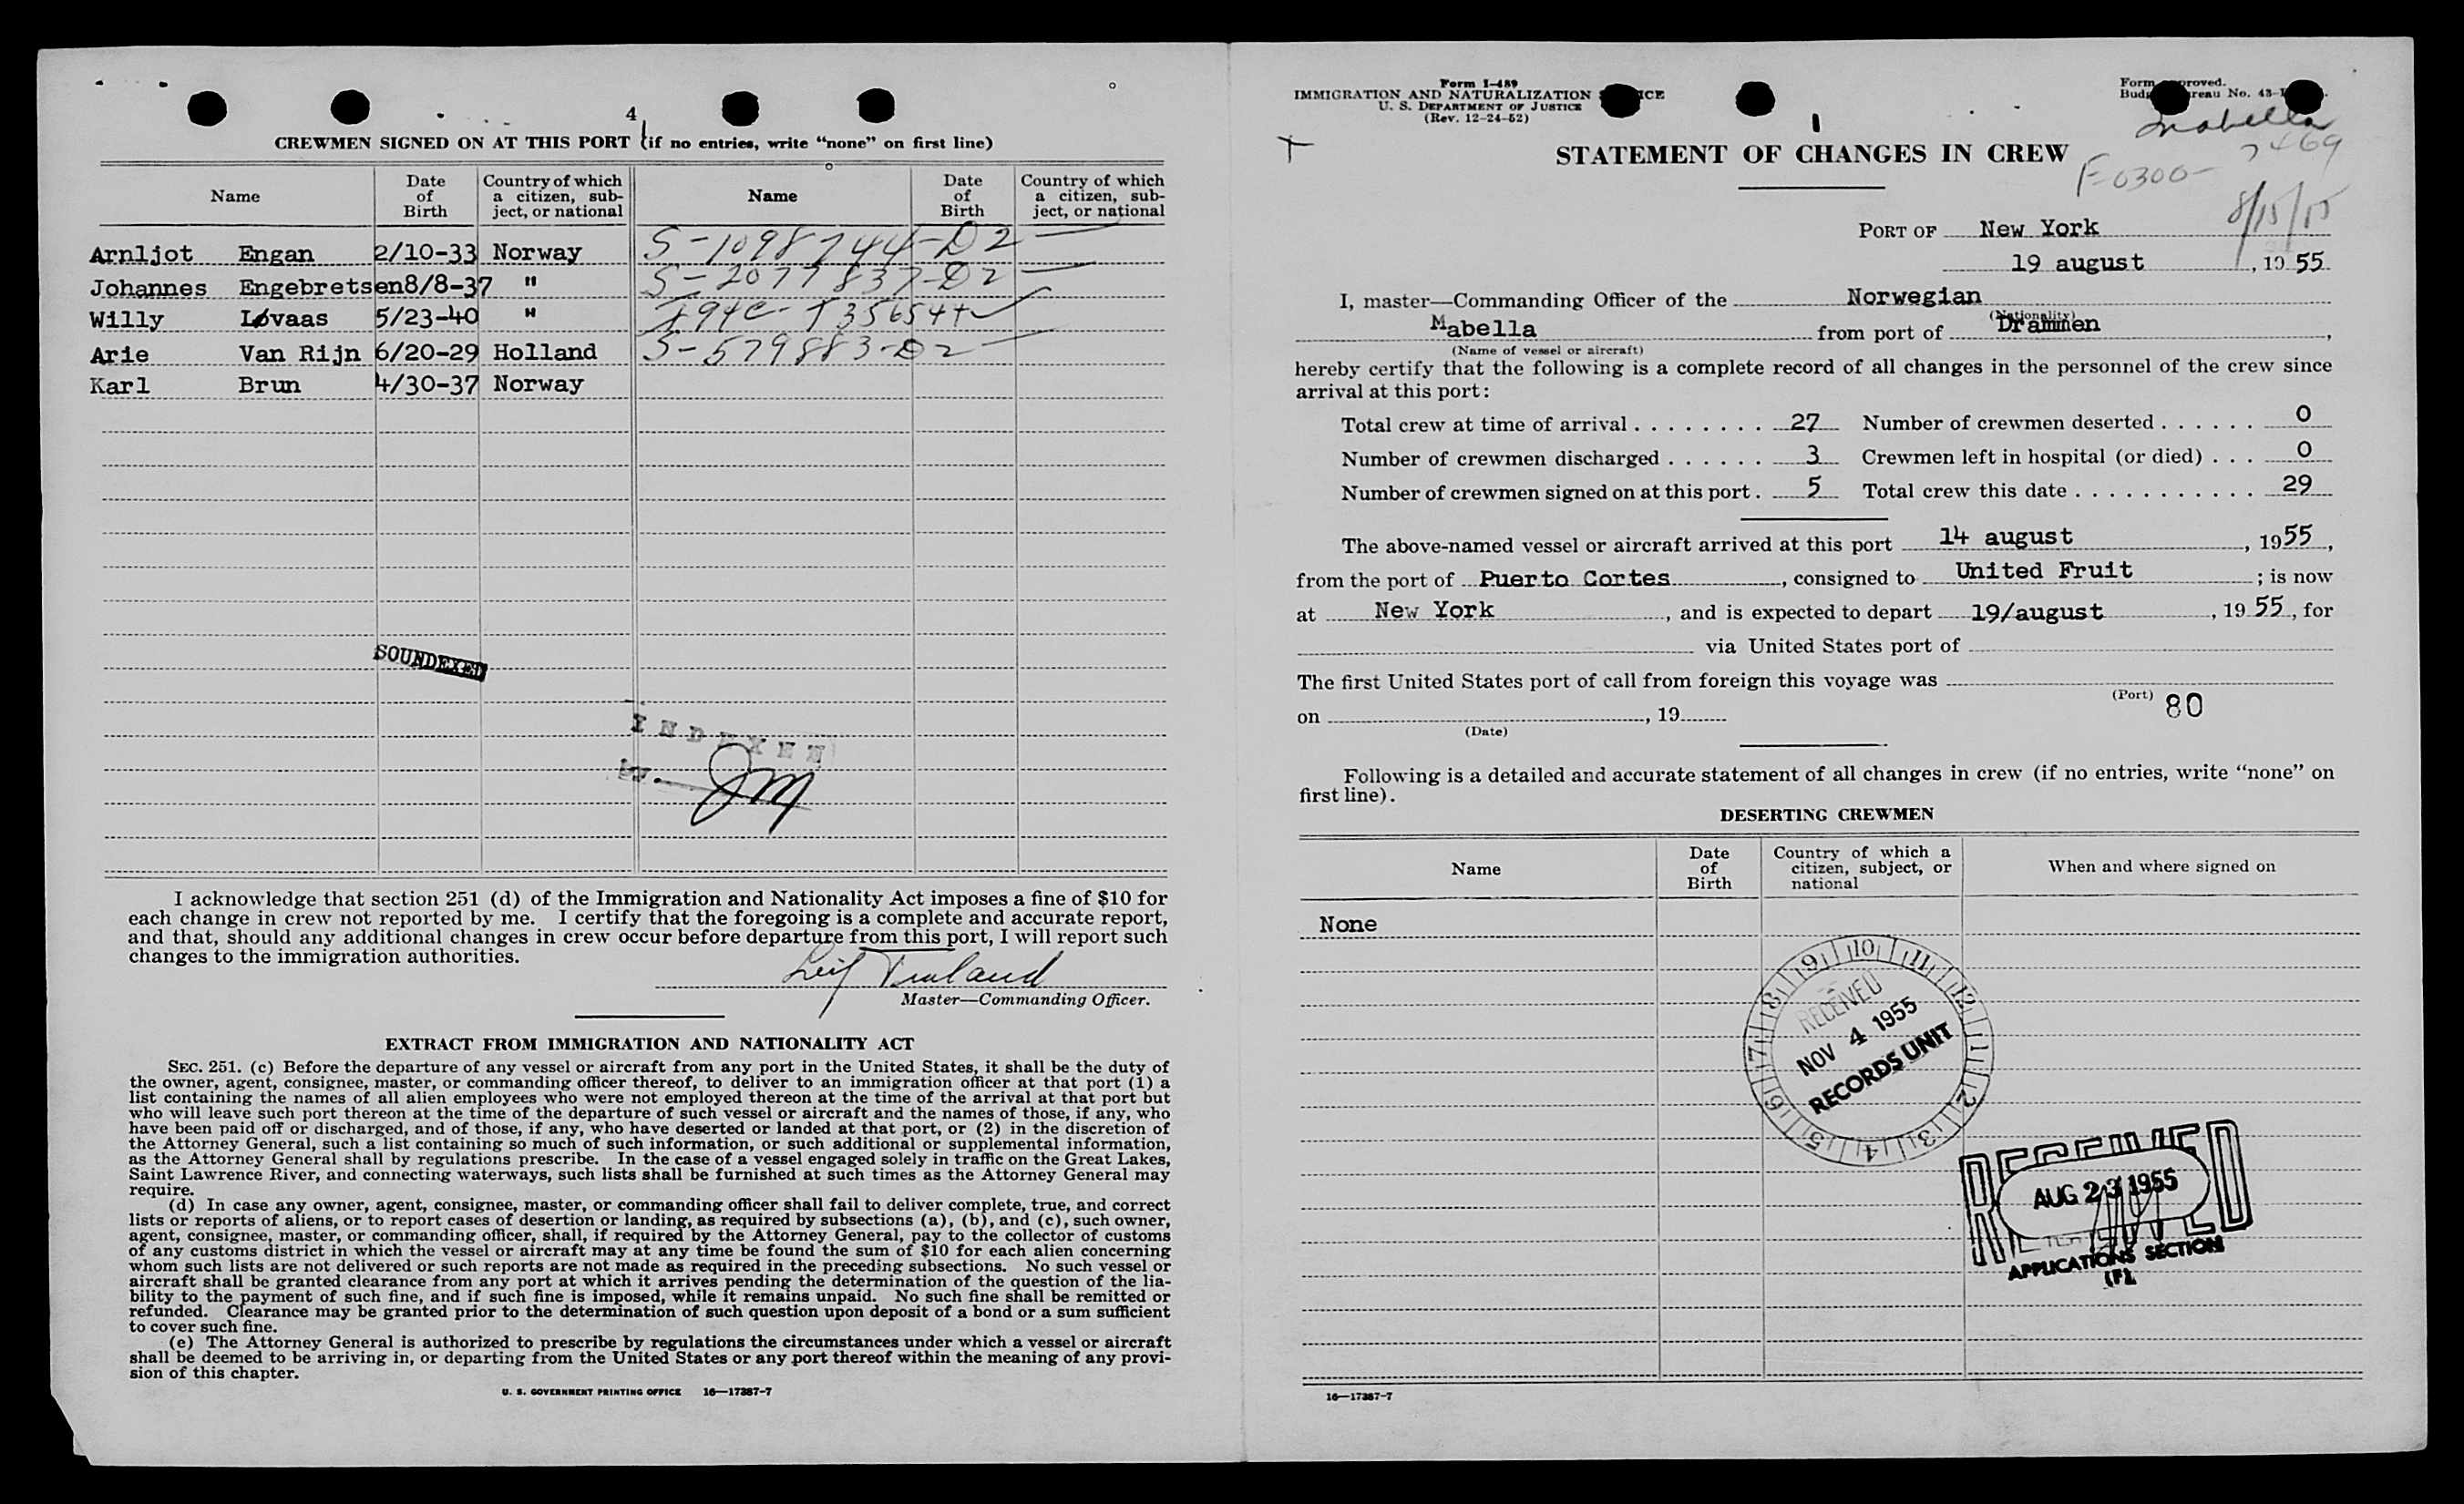 4
CREWMEN SIGNED ON AT THIS PORT (if no entries, write “none” on first line)
Name Date of Birth Country of which a citizen, subject, or national Name Date of Birth Country of which a citizen, subject, or national
Arnljot Engan 2/10-33 Norway S-1098744-D2
Johannes Engebretsen 8/8-37 " S-2077837-D2
Willy Løvaas 5/23-40 "
Arie Van Rijn 6/20-29 Holland S-579883-D2
Karl Brun 4/30-37 Norway
SOUNDEXED
INDEXED
I acknowledge that section 251 (d) of the Immigration and Nationality Act imposes a fine of $10 for
each change in crew not reported by me. I certify that the foregoing is a complete and accurate report,
and that, should any additional changes in crew occur before departure from this port, I will report such
changes to the immigration authorities.
Leif
Master—Commanding Officer.
EXTRACT FROM IMMIGRATION AND NATIONALITY ACT
SEC. 251. (c) Before the departure of any vessel or aircraft from any port in the United States, it shall be the duty of
the owner, agent, consignee, master, or commanding officer thereof, to deliver to an immigration officer at that port (1) a
list containing the names of all alien employees who were not employed thereon at the time of the arrival at that port but
who will leave such port thereon at the time of the departure of such vessel or aircraft and the names of those, if any, who
have been paid off or discharged, and of those, if any, who have deserted or landed at that port, or (2) in the discretion of
the Attorney General, such a list containing so much of such information, or such additional or supplemental information,
as the Attorney General shall by regulations prescribe. In the case of a vessel engaged solely in traffic on the Great Lakes,
Saint Lawrence River, and connecting waterways, such lists shall be furnished at such times as the Attorney General may
require.
(d) In case any owner, agent, consignee, master, or commanding officer shall fail to deliver complete, true, and correct
lists or reports of aliens, or to report cases of desertion or landing, as required by subsections (a), (b), and (c), such owner,
agent, consignee, master, or commanding officer, shall, if required by the Attorney General, pay to the collector of customs
of any customs district in which the vessel or aircraft may at any time be found the sum of $10 for each alien concerning
whom such lists are not delivered or such reports are not made as required in the preceding subsections. No such vessel or
aircraft shall be granted clearance from any port at which it arrives pending the determination of the question of the lia-
bility to the payment of such fine, and if such fine is imposed, while it remains unpaid. No such fine shall be remitted or
refunded. Clearance may be granted prior to the determination of such question upon deposit of a bond or a sum sufficient
to cover such fine.
(e) The Attorney General is authorized to prescribe by regulations the circumstances under which a vessel or aircraft
shall be deemed to be arriving in, or departing from the United States or any port thereof within the meaning of any provi-
sion of this chapter.
U. S. GOVERNMENT PRINTING OFFICE 16—17387-7
Form I-489
IMMIGRATION AND NATURALIZATION
U. S. DEPARTMENT OF JUSTICE
(Rev. 12-24-52)
Form
No. 43-
Mabella
7469
F-0300-
8/15/55
STATEMENT OF CHANGES IN CREW
PORT OF New York
19 august, 19 55
I, master—Commanding Officer of the Norwegian
(Nationality)
Mabella from port of Drammen,
(Name of vessel or aircraft)
hereby certify that the following is a complete record of all changes in the personnel of the crew since
arrival at this port:
Total crew at time of arrival 27 Number of crewmen deserted 0
Number of crewmen discharged 3 Crewmen left in hospital (or died) 0
Number of crewmen signed on at this port 5 Total crew this date 29
The above-named vessel or aircraft arrived at this port 14 august, 1955,
from the port of Puerto Cortes, consigned to United Fruit; is now
at New York, and is expected to depart 19/august, 19 55, for
via United States port of
The first United States port of call from foreign this voyage was
(Port) 80
on , 19
(Date)
Following is a detailed and accurate statement of all changes in crew (if no entries, write “none” on
first line).
DESERTING CREWMEN
Name Date of Birth Country of which a citizen, subject, or national When and where signed on
None
9 10 11 12 1 2 3 4 5 6 7 8
RECEIVED
NOV 4 1955
RECORDS UNIT
RECEIVED
AUG 23 1955
APPLICATIONS SECTION
16—17387-7